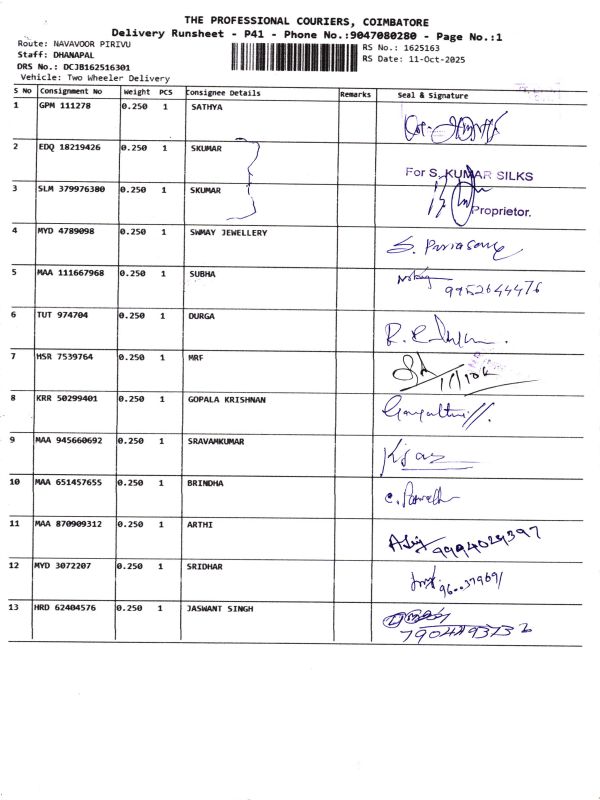 THE PROFESSIONAL COURIERS, COIMBATORE
Delivery Runsheet - P41 - Phone No.:9047080280 - Page No.:1
Route: NAVAVOOR PIRIVU
RS No.: 1625163
Staff: DHANAPAL
RS Date: 11-Oct-2025
DRS No.: DCJB162516301
Vehicle: Two Wheeler Delivery
S No Consignment No Weight PCS Consignee Details Remarks Seal & Signature
1 GPM 111278 0.250 1 SATHYA
2 EDQ 18219426 0.250 1 SKUMAR
For S. KUMAR SILKS
3 SLM 379976380 0.250 1 SKUMAR
Proprietor.
4 MYD 4789098 0.250 1 SWMAY JEWELLERY
5 MAA 111667968 0.250 1 SUBHA
9952644476
6 TUT 974704 0.250 1 DURGA
7 HSR 7539764 0.250 1 MRF
8 KRR 50299401 0.250 1 GOPALA KRISHNAN
9 MAA 945660692 0.250 1 SRAVAMKUMAR
10 MAA 651457655 0.250 1 BRINDHA
11 MAA 870909312 0.250 1 ARTHI
9994029397
12 MYD 3072207 0.250 1 SRIDHAR
13 HRD 62404576 0.250 1 JASWANT SINGH